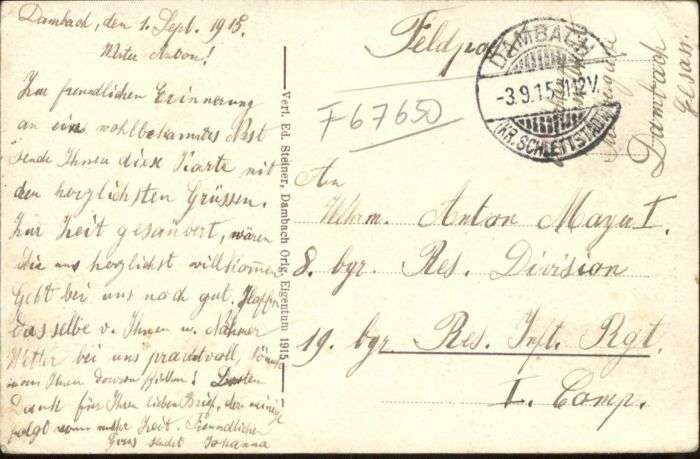 Dambach, den 1. Sept. 1915.
Mister Anton!
Zur freundlichen Erinnerung
an ein wohlbekanntes Nest
sende Ihnen diese Karte mit
den herzlichsten Grüssen.
Zur Zeit gesäubert, wären
Sie uns herzlichst willkommen
Geht bei uns noch gut. Hoffe
dasselbe v. Ihnen u.
Wetter bei uns prachtvoll,
Ihnen davon
Dank für Ihren lieben Brief, der meinige
folgt wenn mehr Zeit. Freundlichen
Gruss sendet Johanna
Verl. Ed. Steiner, Dambach Orig. Eigentum 1915.
Feldpo
DAMBACH
-3.9.15 11-12V.
(KR. SCHLETTSTADT)
F67650
Dambach
Elsass.
An
Wehrm. Anton Mayer I.
8. byr. Res. Division
19. byr Res. Inft. Rgt.
I. Comp.